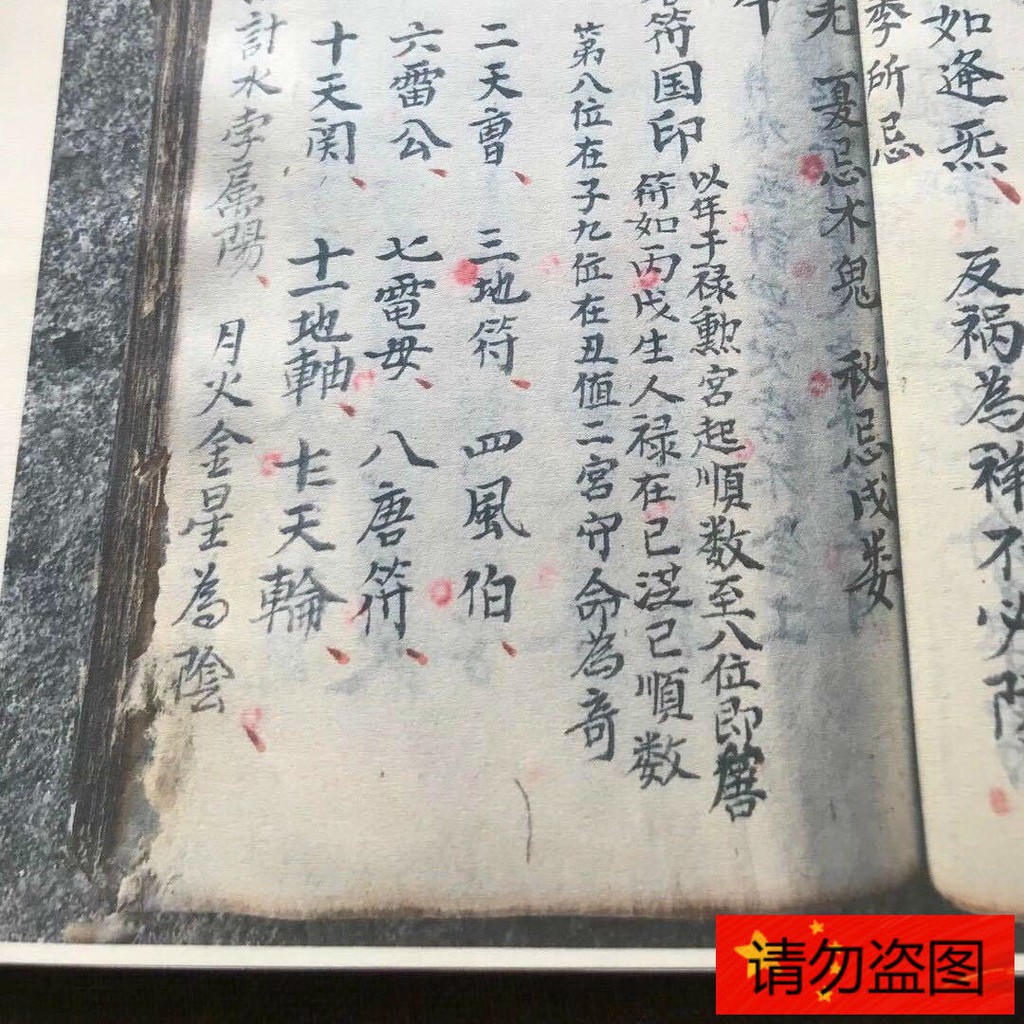 如逢炁 反祸為祥不必
季所忌
夏忌木鬼 秋忌戊娄
符国印
以年干禄勲宮起順数至八位即唐
符如丙戊生人禄在巳从巳順数
第八位在子九位在丑值二宮守命為奇
二天曹 三地符 四風伯
六雷公 七電母 八唐符
十天関 十一地軸 十二天輪
計水孛属陽 月火金星為陰
请勿盗图